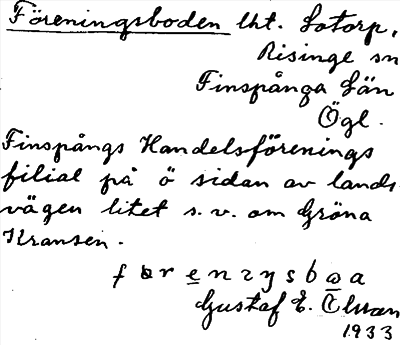 Föreningsboden lht. Sotorp,
Risinge sn
Finspånga Län
Ögl.
Finspångs Handelsförenings
filial på ö sidan av lands-
vägen litet s.v. om Gröna
Kransen.
Gustaf E.
1933